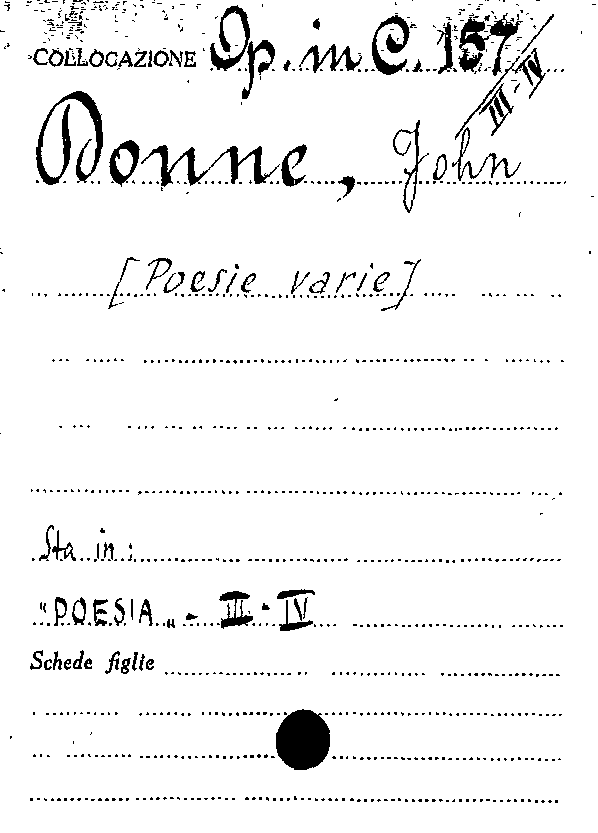 COLLOCAZIONE Op. in C. 157/III-IV
Donne, John
[Poesie varie]
Sta in:
"POESIA" - III - IV
Schede figlie